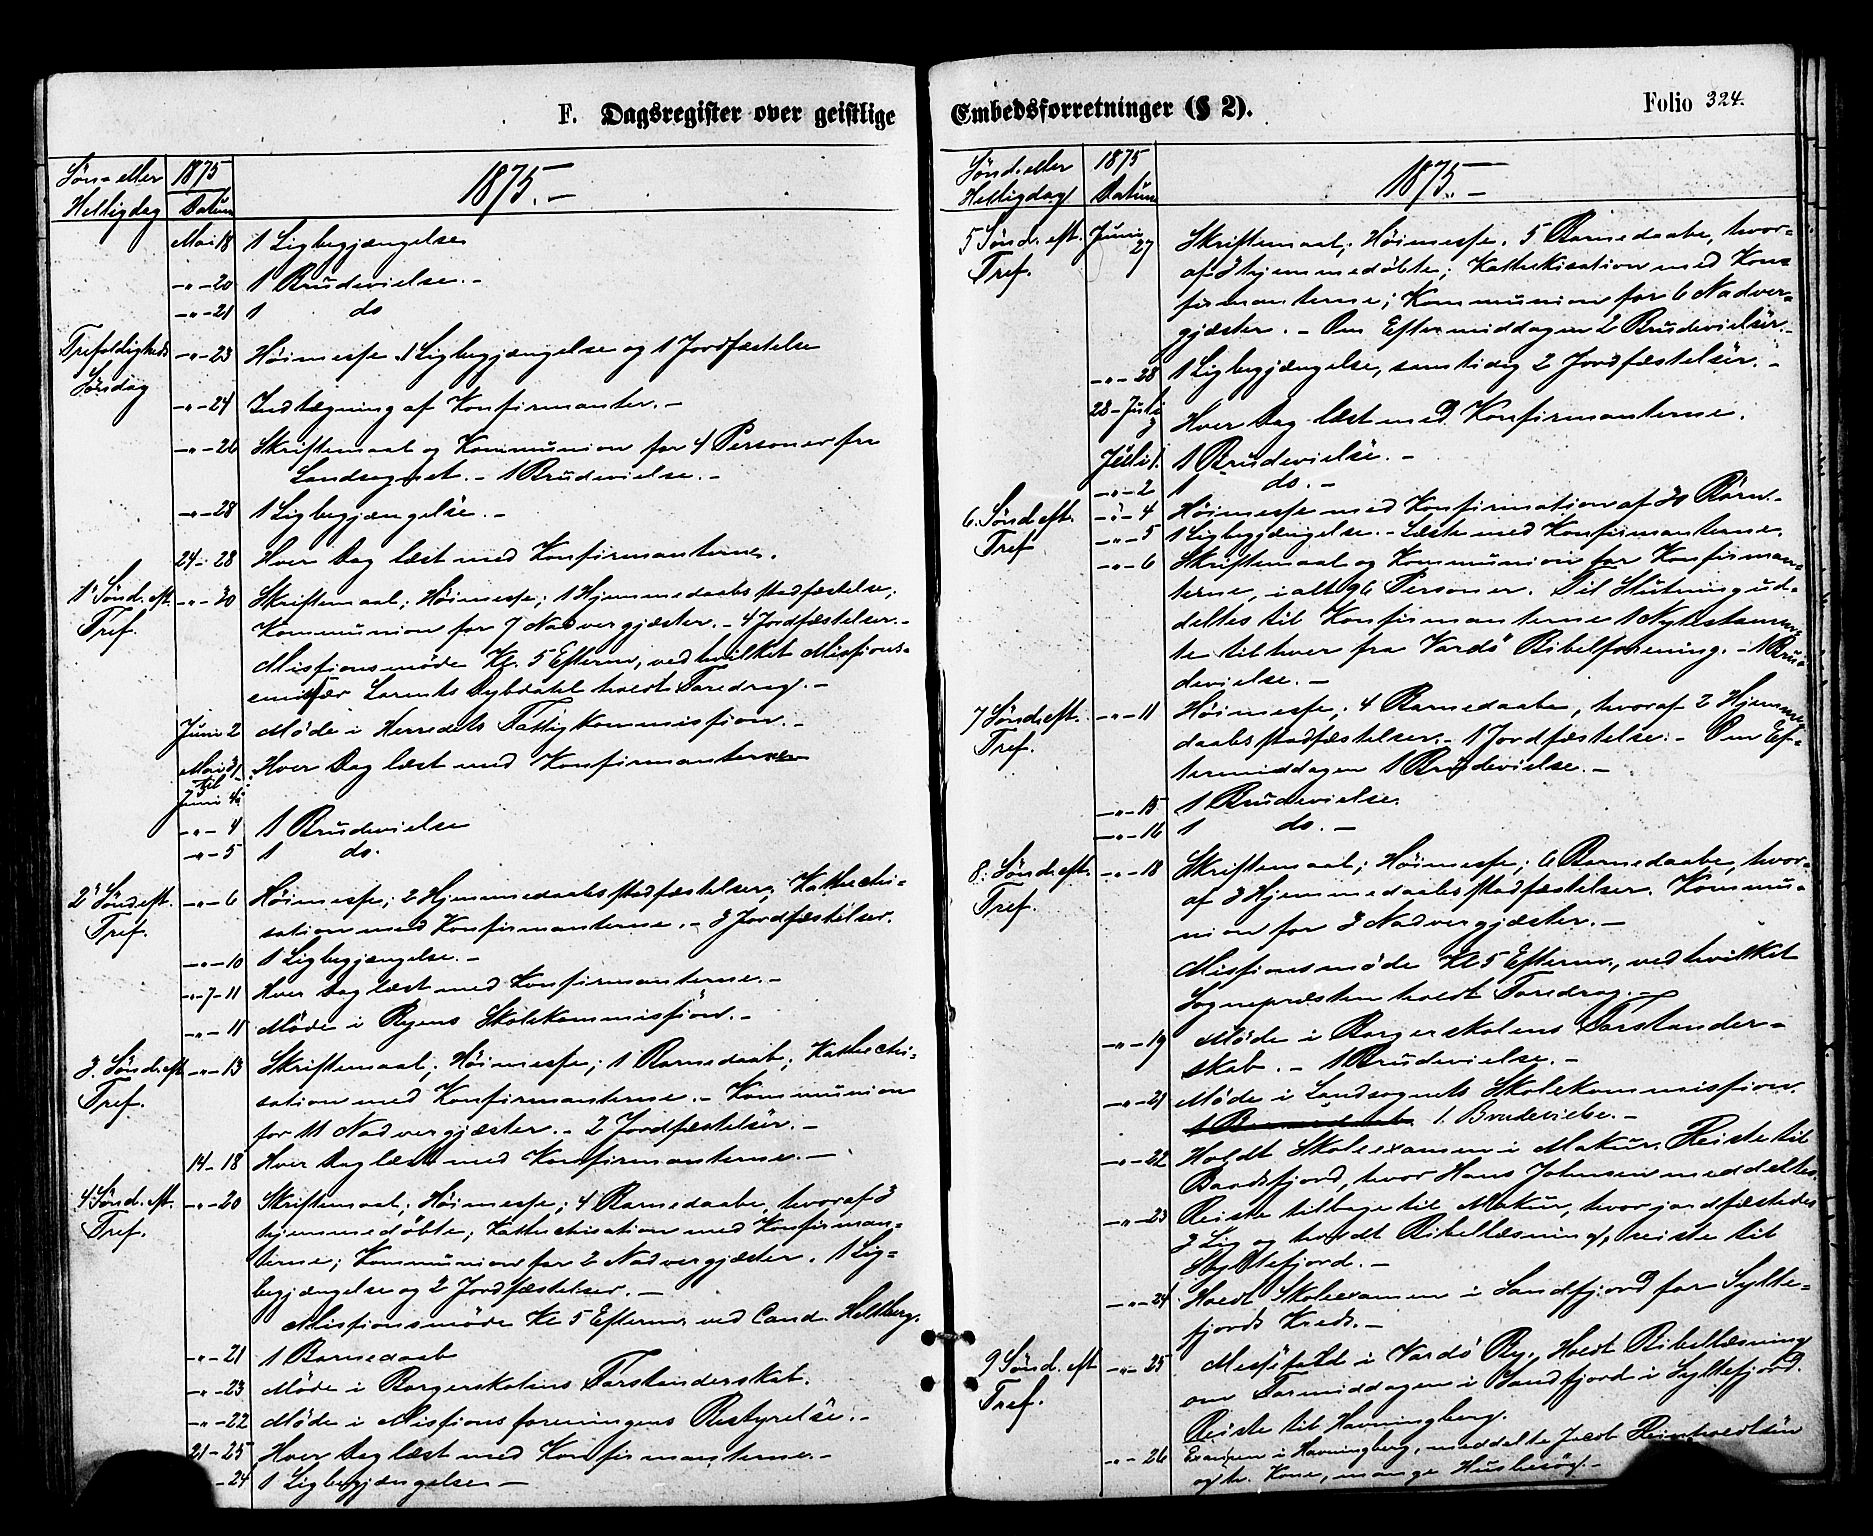 F. Dagsregister over geistlige
Søn- eller Helligdag
1875 Datum
1875.-
Mai 18 1 Ligbegjængelse
-"-20 1 Brudevielse.-
-"-21 1 do
Trefoldigheds Søndag -"-23 Høimesse. 1 Ligbegjængelse og 1 Jordfæstelse
-"-24 Indtegning af Konfirmanter.-
-"-26 Skriftemaal og Kommunion for 4 Personer fra
Landsognet.- 1 Brudevielse.-
-"-28 1 Ligbegjængelse.-
24-28 Hver Dag læst med Konfirmanterne.
1 Sønd. eft. Tref. -"-30 Skriftemaal; Høimesse; 1 Hjemmedaabsstadfæstelse;
Kommunion for 7 Nadvergjæster.- 4 Jordfæstelser.-
Missionsmøde Kl. 5 Efterm., ved hvilket Missions-
emissær Laurents Dybdahl holdt Foredrag.-
Juni 2 Møde i Herredets Fattigkommission.-
Mai 31 til Juni 4 Hver Dag læst med Konfirmanterne
-"-4 1 Brudevielse
-"-5 1 do.
2 Sønd. eft. Tref. -"-6 Høimesse; 2 Hjemmedaabsstadfæstelser; Kathechi-
sation med Konfirmanterne.- 3 Jordfæstelser.
-"-10 1 Ligbegjængelse.-
-"-7-11 Hver Dag læst med Konfirmanterne.-
-"-11 Møde i Byens Skolekommission.-
3. Sønd. eft. Tref. -"-13 Skriftemaal; Høimesse; 1 Barnedaab; Kathechi-
sation med Konfirmanterne.- Kommunion
for 11 Nadvergjæster.- 2 Jordfæstelser.-
14-18 Hver Dag læst med Konfirmanterne.-
4 Sønd. eft. Tref. -"-20 Skriftemaal; Høimesse; 4 Barnedaabe, hvoraf 3
hjemmedøbte; Kathechisation med Konfirman-
terne; Kommunion for 2 Nadvergjæster. 1 Lig-
begjængelse og 2 Jordfæstelser.-
Missionsmøde Kl 5 Efterm. ved Cand. Heltberg.
-"-21 1 Barnedaab
-"-23 Møde i Borgerskolens Forstanderskab.
-"-22 Møde i Missionsforeningens Bestyrelse.-
21-25 Hver Dag læst med Konfirmanterne.-
-24 1 Ligbegjængelse-
Embedsforretninger (§ 2).
Folio 324.
Sønd. eller Helligdag
1875 Datum
1875.-
5 Sønd. eft. Tref. Juni 27 Skriftemaal; Høimesse. 5 Barnedaabe, hvor-
af 3 hjemmedøbte; Kathekisation med Kon-
firmanterne; Kommunion for 6 Nadver-
gjæster.- Om Eftermiddagen 2 Brudevielser.-
-"-28 1 Ligbegjængelse, samtidig 2 Jordfæstelser.-
28-Juli 3 Hver Dag læst med Konfirmanterne.
Juli 1. 1 Brudevielse.-
-"-2 1 do.-
6. Sønd. eft. Tref -"-4 Høimesse med Konfirmation af 30 Børn.-
-"-5 1 Ligbegjængelse.- Læste med Konfirmanterne.
-"-6 Skriftemaal og Kommunion for Konfirman-
terne, ialt 96 Personer. Til Slutning ud-
deltes til Konfirmanterne 1 Nytestamen-
te til hver fra Vardö Bibelforening.- 1 Bru-
devielse.-
7 Sønd. eft. Tref. -"-11 Høimesse; 4 Barnedaabe, hvoraf 2 Hjemme-
daabsstadfæstelser.- 1 Jordfæstelse.- Om Ef-
termiddagen 1 Brudevielse.-
-"-15 1 Brudevielse.
-"-16 1 do.-
8. Sønd. eft. Tref. -"-18 Skriftemaal; Høimesse; 6 Barnedaabe, hvor-
af 3 Hjemmedaabsstadfæstelser. Kommu-
nion for 3 Nadvergjæster.-
Missionsmøde Kl 5 Efterm., ved hvilket
Sognepræsten holdt Foredrag.-
-"-19 Møde i Borgerskolens Forstander-
skab.- 1 Brudevielse.-
-"-21 Møde i Landsognets Skolekommission.
1 Brudevielse.-
-"-22 Holdt Skoleexamen i Makur. Reiste til
Baadsfjord, hvor Hans Johnsen meddeltes.
-"-23 Reiste tilbage til Makur, hvor jordfæstedes
3 Lig og holdt Bibellæsning, reiste til
Syltefjord.-
-"-24 Holdt Skoleexamen i Sandfjord for Sylte-
fjords Kreds.-
9 Sønd. eft Tref. -"-25 Messefald i Vardö By. Holdt Bibellæsning
om Formiddagen i Sandfjord i Syltefjord.
Reiste til Havningberg.
-"-26 Examen i Havningberg, meddelte Jacob Reinholdtsen
og h. Kone, mange Husbesøg.-